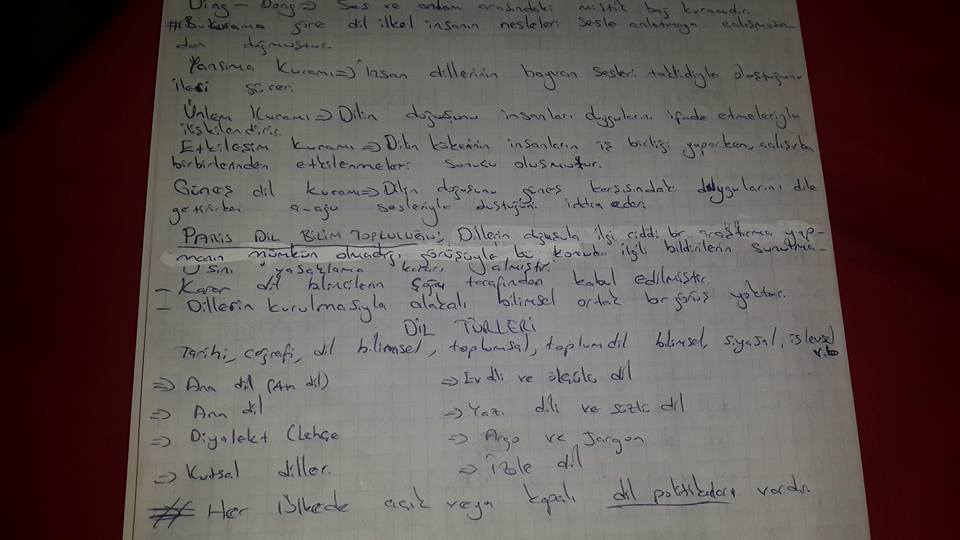 Ding - Dong => Ses ve anlam arasındaki mistik bağ kuramıdır.
# Bu kurama göre dil ilkel insanın nesleleri sesle anlatmaya çalışmasın-
dan doğmuştur.
Yansıma Kuramı => İnsan dillerinin hayvan sesleri taklidiyle oluştuğunu
ileri sürer.
Ünlem Kuramı => Dilin doğuşunu insanları duygularını ifade etmeleriyle
ilişkilendirir.
Etkileşim Kuramı => Dilin kökenin insanların iş birliği yaparken, çalışırken
birbirlerinden etkilenmeleri sonucu oluşmuştur.
Güneş dil kuramı => Dilin doğuşunu güneş karşısındaki duygularını dile
getirirken a-ağu sesleriyle oluştuğunu iddia eder.
PARİS DİL BİLİM TOPLULUĞU; Dillerin doğuşula ilgi ciddi bir araştırma yap-
manın mümkün olmadığı görüşüyle bu konubı ilgili bildirilerin sunulma-
sını yasaklama kararı almıştır.
- Karar dil bilimcilerin çoğu tarafından kabul edilmiştir.
- Dillerin kurulmasıyla alakalı bilimsel ortak bir görüş yoktur.
DİL TÜRLERİ
Tarihi, coğrafi, dil bilimsel, toplumsal, toplum dil bilimsel, siyasal, işlevsel
v.b
=> Ana dil (An dil) => Ev dli ve ölçülü dil
=> Ana dil => Yazı dili ve sözlü dil
=> Diyalekt (Lehçe => Argo ve Jargon
=> Kutsal diller. => İzole dil
# Her ülkede açık veya kapalı dil politikaları vardır.